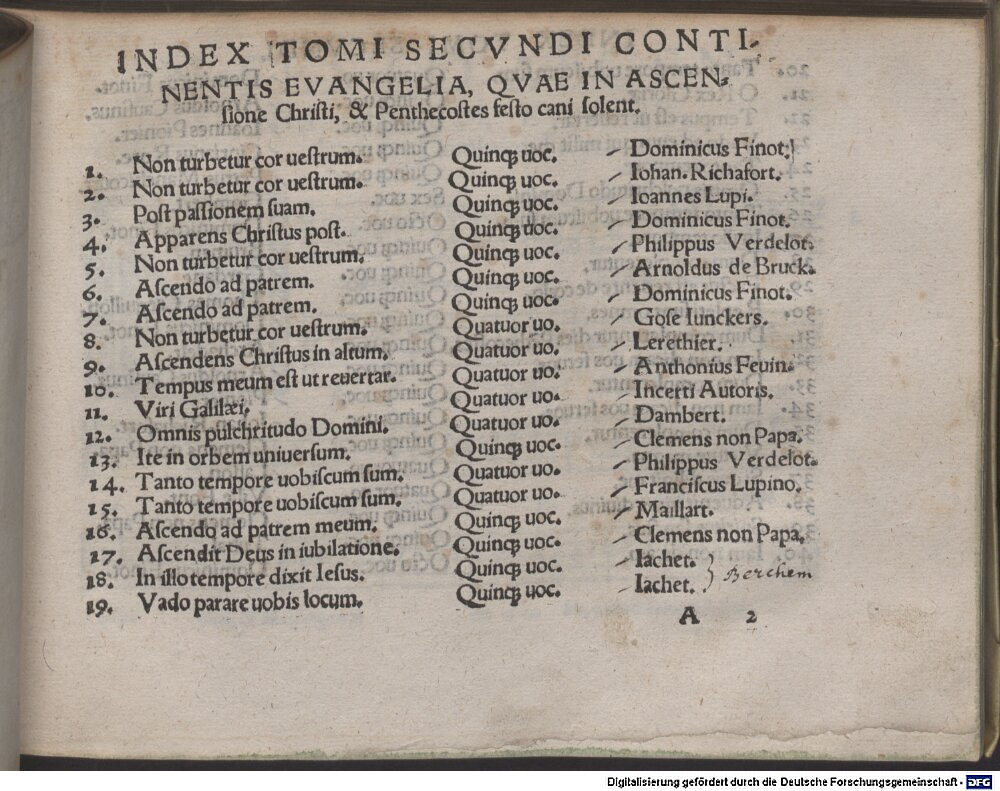 INDEX TOMI SECVNDI CONTI-
NENTIS EVANGELIA, QVAE IN ASCEN-
sione Christi, & Penthecostes festo cani solent.
1. Non turbetur cor uestrum. Quinqȝ uoc. Dominicus Finot.
2. Non turbetur cor uestrum. Quinqȝ uoc. Iohan. Richafort.
3. Post passionem suam. Quinqȝ uoc. Ioannes Lupi.
4. Apparens Christus post. Quinqȝ uoc. Dominicus Finot.
5. Non turbetur cor uestrum. Quinqȝ uoc. Philippus Verdelot.
6. Ascendo ad patrem. Quinqȝ uoc. Arnoldus de Bruck.
7. Ascendo ad patrem. Quinqȝ uoc. Dominicus Finot.
8. Non turbetur cor uestrum. Quatuor uo. Gose Iunckers.
9. Ascendens Christus in altum. Quatuor uo. Lerethier.
10. Tempus meum est ut reuertar. Quatuor uo. Anthonius Feuin.
11. Viri Galilæi. Quatuor uo. Incerti Autoris.
12. Omnis pulchritudo Domini. Quatuor uo. Dambert.
13. Ite in orbem uniuersum. Quinqȝ uoc. Clemens non Papa.
14. Tanto tempore uobiscum sum. Quatuor uo. Philippus Verdelot.
15. Tanto tempore uobiscum sum. Quatuor uo. Franciscus Lupino.
16. Ascendo ad patrem meum. Quinqȝ uoc. Maillart.
17. Ascendit Deus in iubilatione. Quinqȝ uoc. Clemens non Papa.
18. In illo tempore dixit Iesus. Quinqȝ uoc. Iachet. } Berchem
19. Vado parare uobis locum. Quinqȝ uoc. Iachet.
A 2
Digitalisierung gefördert durch die Deutsche Forschungsgemeinschaft - DFG